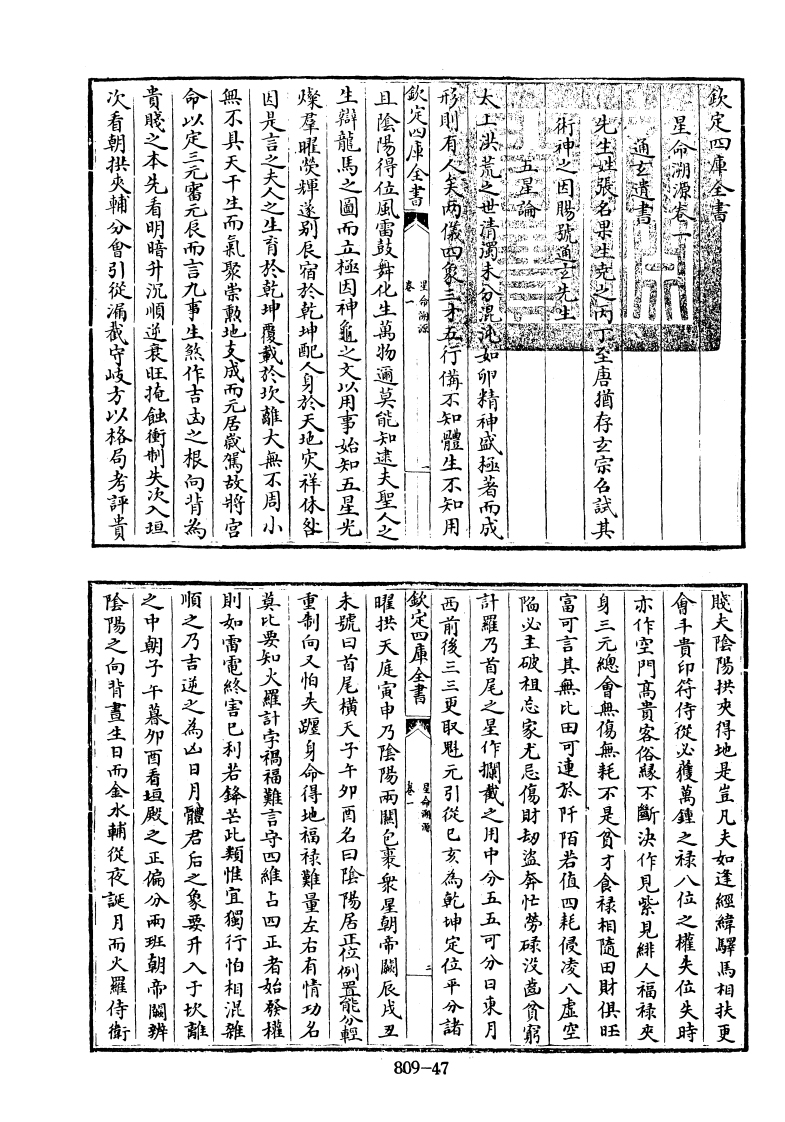 欽定四庫全書
星命溯源卷一
通玄遺書
先生姓張名果生堯之丙丁至唐猶存玄宗召試其
術神之因賜號通玄先生
五星論
太上洪荒之世清濁未分混沌如卵精神盛極著而成
形則有人矣兩儀四象三才五行備不知體生不知用
欽定四庫全書
星命溯源
卷一
一
且陰陽得位風雷鼓舞化生萬物邇莫能知逮夫聖人之
生辯龍馬之圖而立極因神龜之文以用事始知五星光
燦羣曜熒輝遂别辰宿於乾坤配人身於天地灾祥休咎
因是言之夫人之生育於乾坤覆載於坎離大無不周小
無不具天干生而氣聚崇勲地支成而元居歲駕故將宮
命以定三元審元辰而言九事生煞作吉凶之根向背為
貴賤之本先看明暗升沉順逆衰旺掩蝕衝制失次入垣
次看朝拱夾輔分會引從漏截守岐方以格局考評貴
賤夫陰陽拱夾得地是豈凡夫如逢經緯驛馬相扶更
會千貴印符侍從必獲萬鍾之禄八位之權失位失時
亦作空門高貴客俗緣不斷決作見紫見緋人福禄夾
身三元總會無傷無耗不是貧才食禄相隨田財俱旺
富可言其無比田可連於阡陌若值四耗侵凌八虛空
陷必主破祖忘家尤忌傷財劫盜奔忙勞碌没齒貧窮
計羅乃首尾之星作攔截之用中分五五可分日東月
西前後三三更取魁元引從已亥為乾坤定位平分諸
曜拱天庭寅申乃陰陽兩關包裹衆星朝帝闕辰戌丑
欽定四庫全書
星命溯源
卷一
二
未號曰首尾橫天子午卯酉名曰陰陽居正位例置能分輕
重制向又怕失躔身命得地福禄難量左右有情功名
莫比要知火羅計孛禍福難言守四維占四正者始發權
則如雷電終害已利若鋒芒此類惟宜獨行怕相混雜
順之乃吉逆之為凶日月體君后之象要升入于坎離
之中朝子午暮卯酉看垣殿之正偏分兩班朝帝闕辨
陰陽之向背晝生日而金水輔從夜誕月而火羅侍衛
809-47